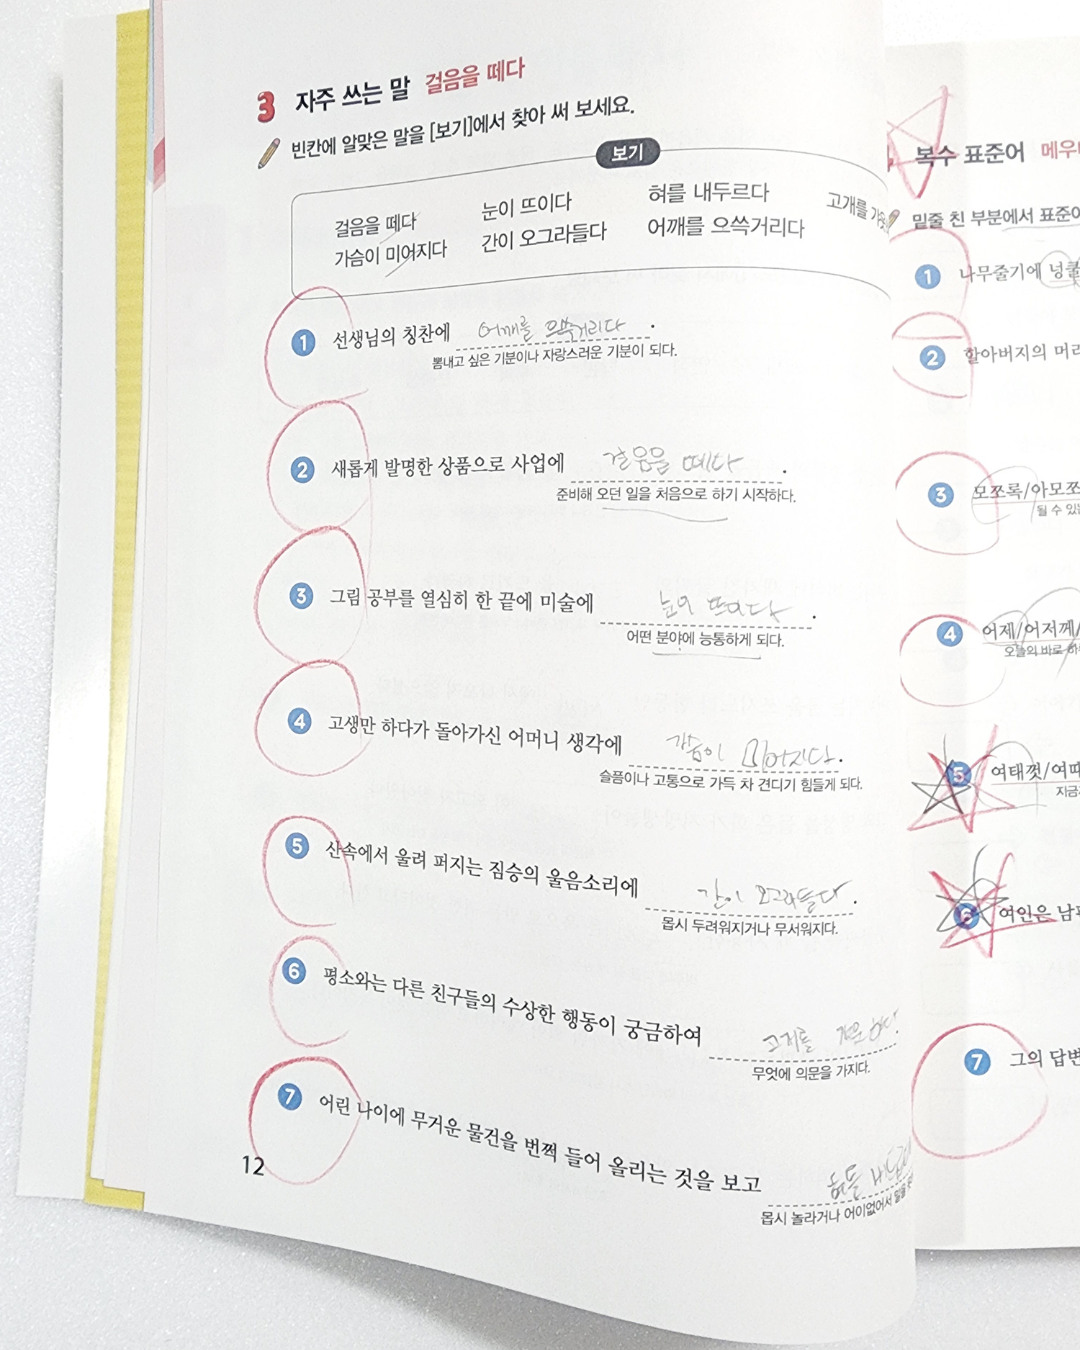 3 자주 쓰는 말 걸음을 떼다
빈칸에 알맞은 말을 [보기]에서 찾아 써 보세요.
보기
걸음을 떼다 눈이 뜨이다 혀를 내두르다 고개를
가슴이 미어지다 간이 오그라들다 어깨를 으쓱거리다
1 선생님의 칭찬에 어깨를 으쓱거리다.
뽐내고 싶은 기분이나 자랑스러운 기분이 되다.
2 새롭게 발명한 상품으로 사업에 걸음을 떼다.
준비해 오던 일을 처음으로 하기 시작하다.
3 그림 공부를 열심히 한 끝에 미술에 눈이 뜨이다.
어떤 분야에 능통하게 되다.
4 고생만 하다가 돌아가신 어머니 생각에 가슴이 미어지다.
슬픔이나 고통으로 가득 차 견디기 힘들게 되다.
5 산속에서 울려 퍼지는 짐승의 울음소리에 간이 오그라들다.
몹시 두려워지거나 무서워지다.
6 평소와는 다른 친구들의 수상한 행동이 궁금하여
무엇에 의문을 가지다.
7 어린 나이에 무거운 물건을 번쩍 들어 올리는 것을 보고 혀를
몹시 놀라거나 어이없어서 말을
12
복수 표준어
밑줄 친 부분에서
1 나무줄기에
2 할아버지의
3 모쪼록/아모쪼
될 수 있는
4 어제/어저께/
오늘의 바로
5 여태껏/여태
6 여인은
7 그의